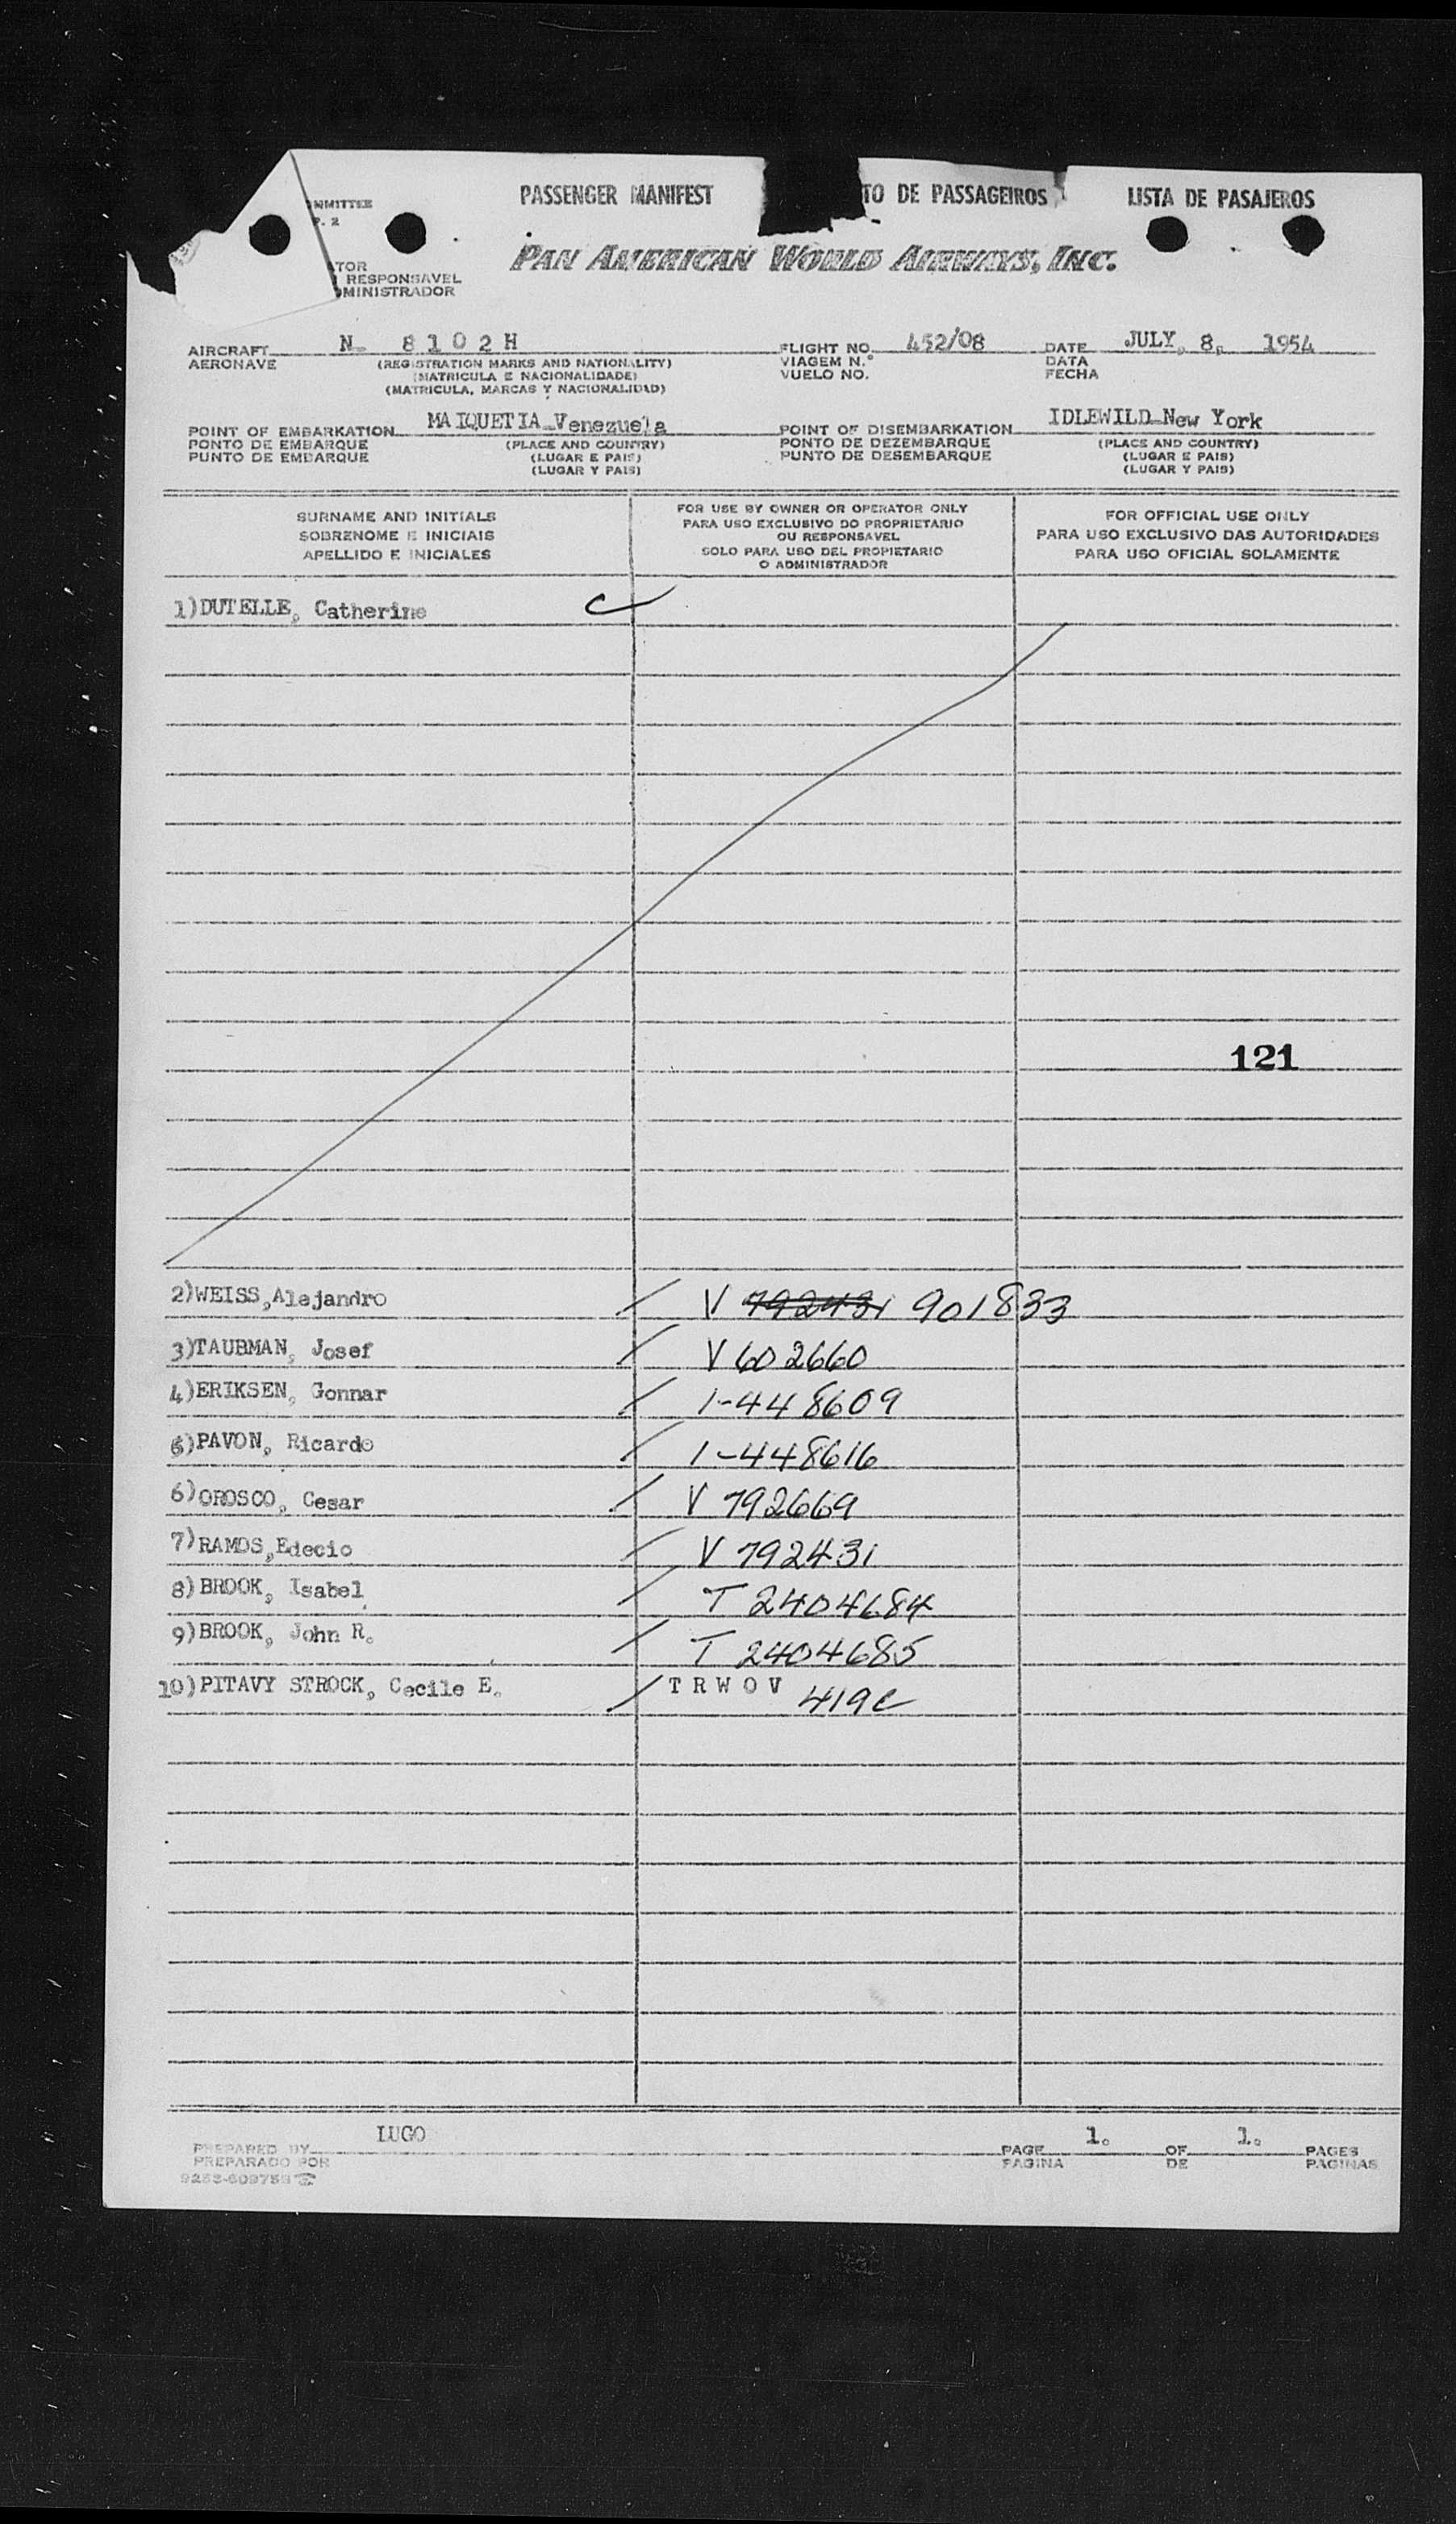 PASSENGER MANIFEST TO DE PASSAGEIROS LISTA DE PASAJEROS
MMITTEE
P. 2
PAN AMERICAN WORLD AIRWAYS, INC.
TOR
RESPONSAVEL
MINISTRADOR
AIRCRAFT N 8102H FLIGHT NO. 452/08 DATE JULY, 8, 1954
AERONAVE (REGISTRATION MARKS AND NATIONALITY) VIAGEM N.° DATA
(MATRICULA E NACIONALIDADE) VUELO NO. FECHA
(MATRICULA, MARCAS Y NACIONALIDAD)
POINT OF EMBARKATION MAIQUETIA Venezuela POINT OF DISEMBARKATION IDLEWILD New York
PONTO DE EMBARQUE (PLACE AND COUNTRY) PONTO DE DEZEMBARQUE (PLACE AND COUNTRY)
PUNTO DE EMBARQUE (LUGAR E PAIS) PUNTO DE DESEMBARQUE (LUGAR E PAIS)
(LUGAR Y PAIS) (LUGAR Y PAIS)
SURNAME AND INITIALS
SOBRENOME E INICIAIS
APELLIDO E INICIALES
FOR USE BY OWNER OR OPERATOR ONLY
PARA USO EXCLUSIVO DO PROPRIETARIO
OU RESPONSAVEL
SOLO PARA USO DEL PROPIETARIO
O ADMINISTRADOR
FOR OFFICIAL USE ONLY
PARA USO EXCLUSIVO DAS AUTORIDADES
PARA USO OFICIAL SOLAMENTE
1)DUTELLE, Catherine
121
2)WEISS,Alejandro V 792431 901833
3)TAUBMAN, Josef V 602660
4)ERIKSEN, Gonnar 1-448609
5)PAVON, Ricardo 1-448616
6)OROSCO, Cesar V 792669
7)RAMOS,Edecio V 792431
8)BROOK, Isabel T 2404684
9)BROOK, John R. T 2404685
10)PITAVY STROCK, Cecile E. T R W O V 419c
LUGO
PREPARED BY PAGE 1. OF 1. PAGES
PREPARADO POR PAGINA DE PAGINAS